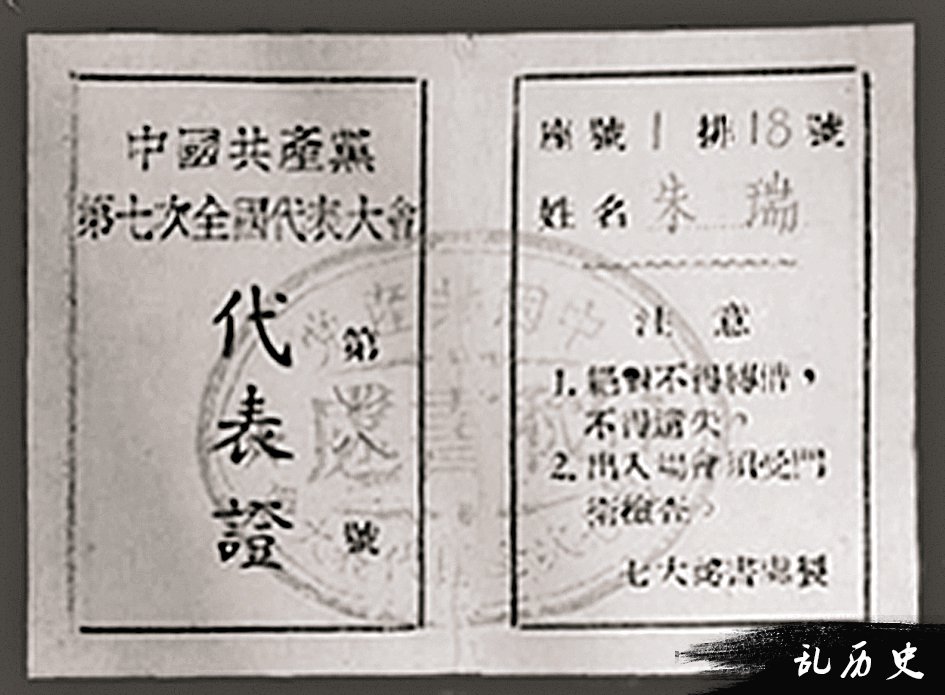 中國共產黨
第七次全國代表大會
代表證
第
號
座號 1 排 18 號
姓名 朱瑞
注意
1. 絕對不得轉借，
不得遺失。
2. 出入場會須受門
衛檢查。
七大秘書處製
乱历史